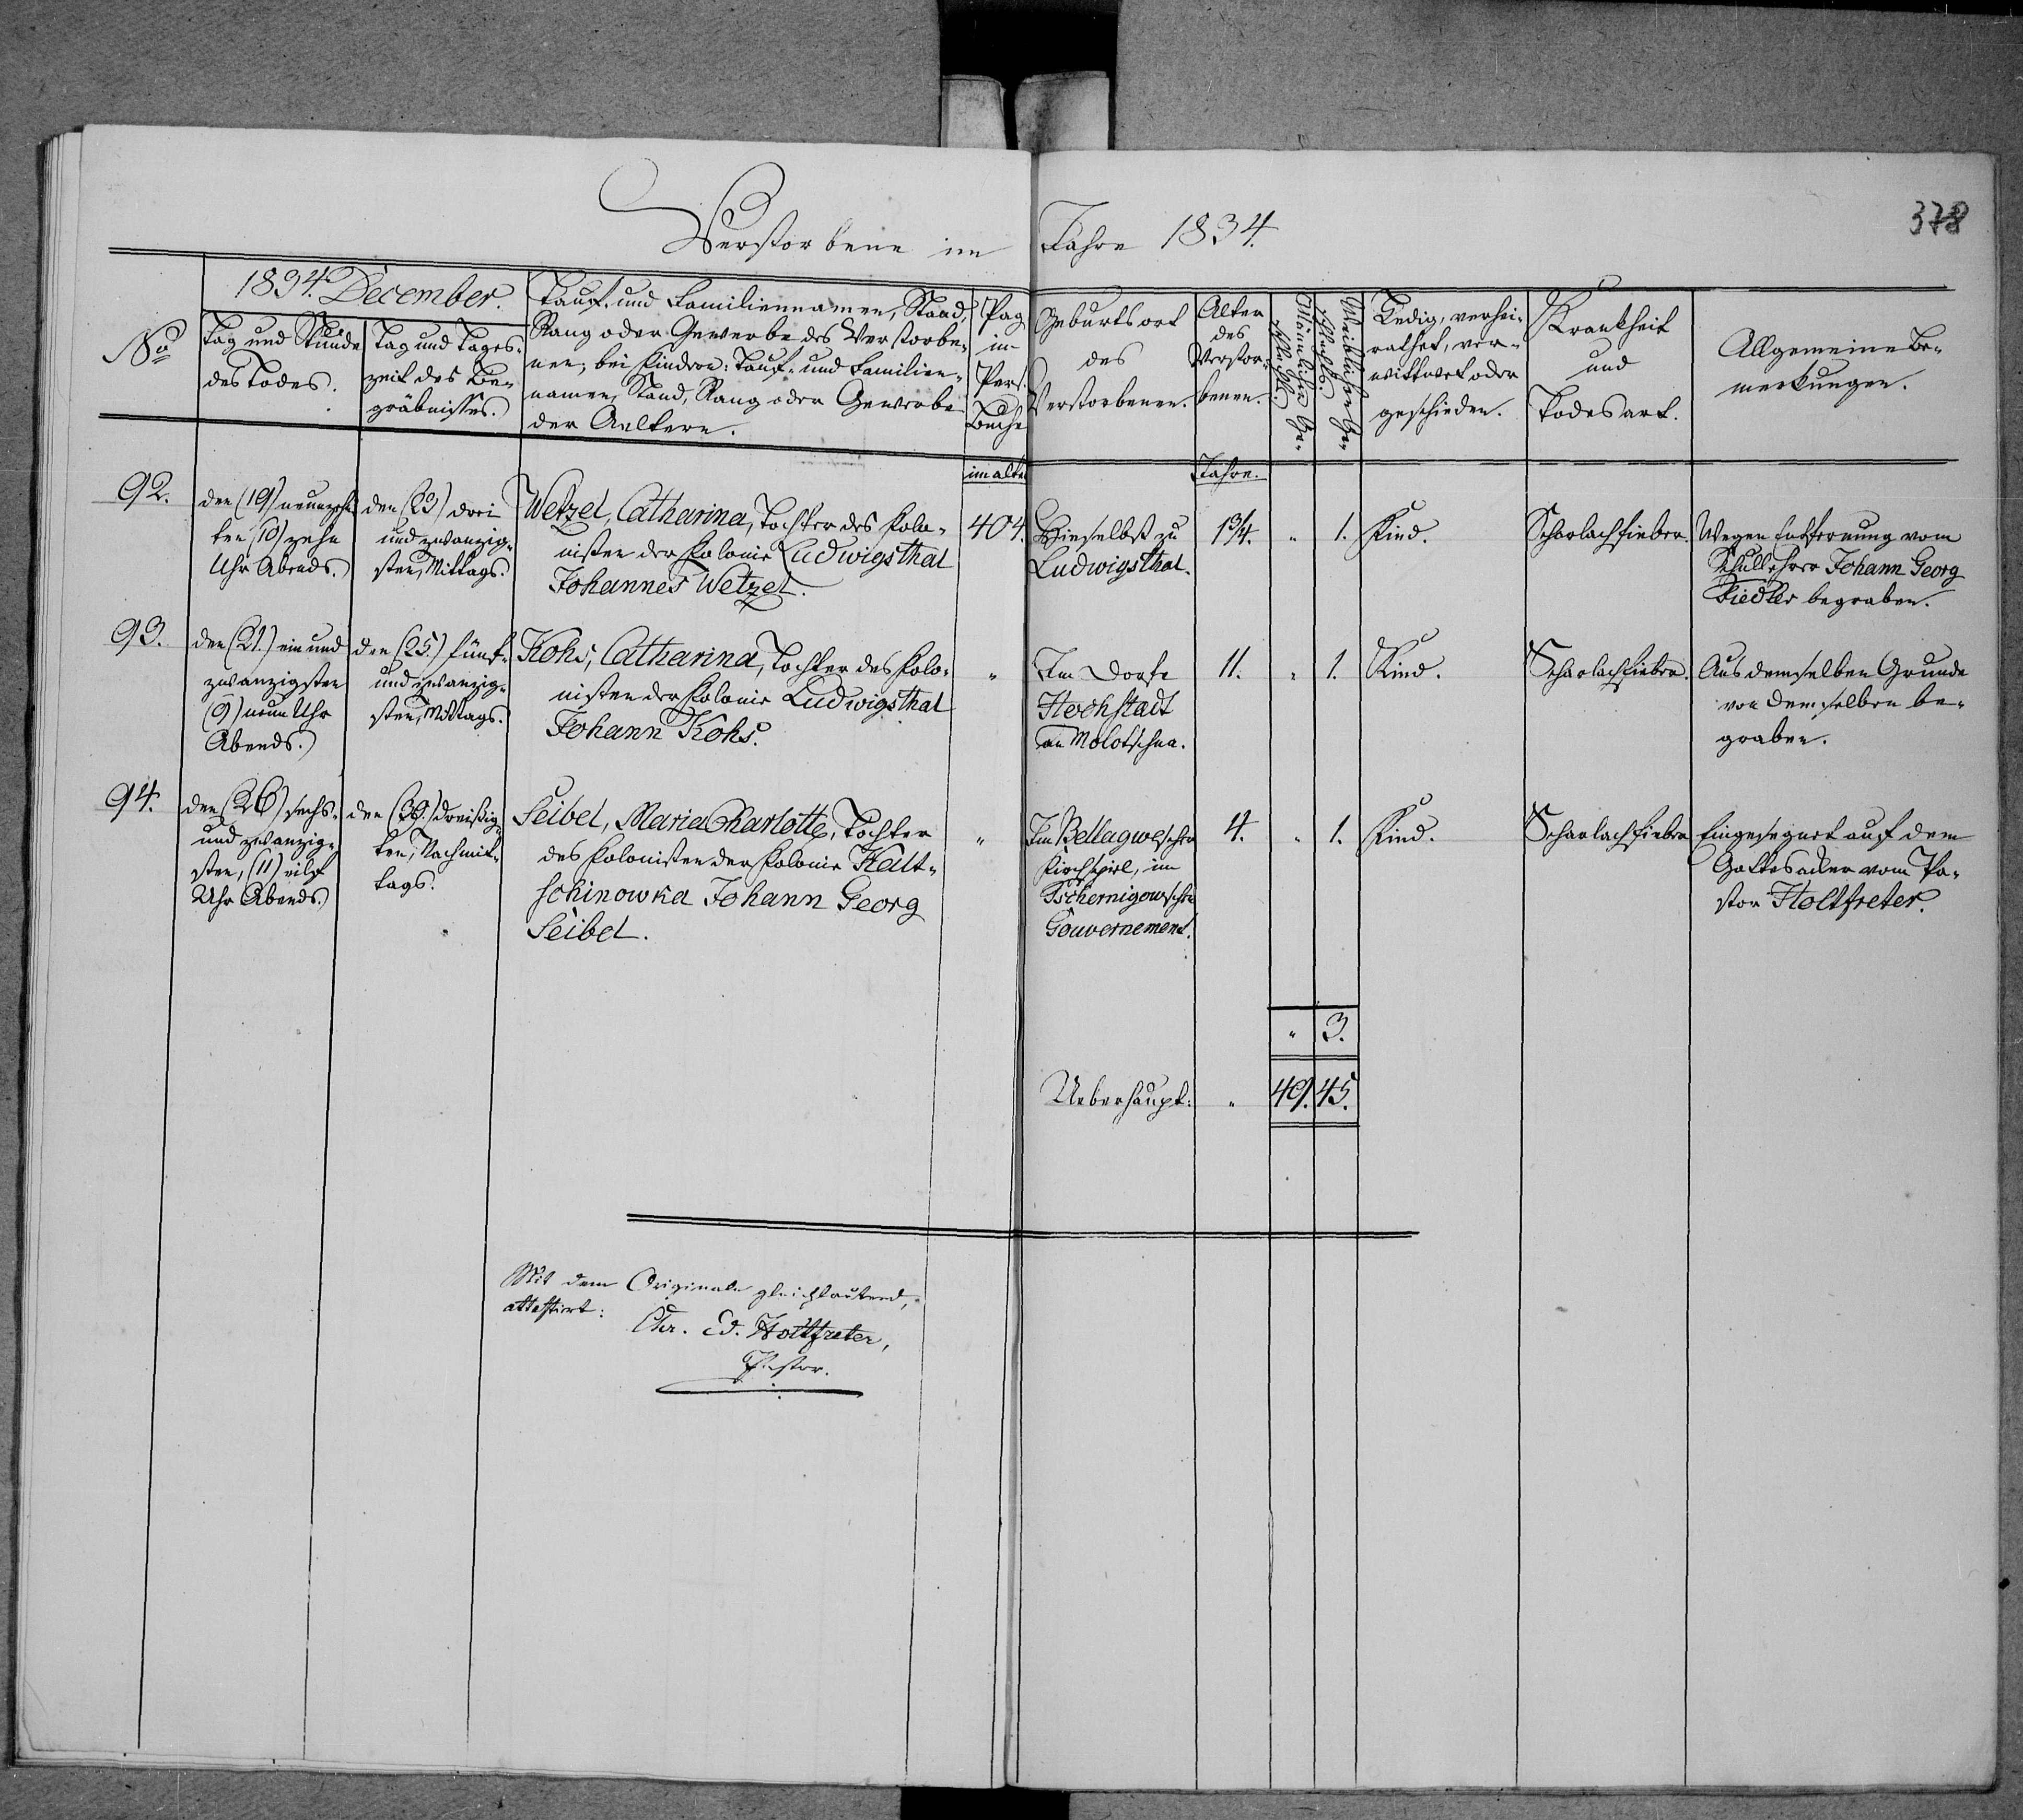 378
Verstorbene im Jahre 1834.
No
1834. December.
Tag und Stunde
des Todes.
Tag und Tages-
zeit des Be-
gräbnisses.
Tauf- und Familiennamen, Stand,
Rang oder Gewerbe des Verstorbe-
nen; bei Kindern: Tauf- und Familien-
namen, Stand, Rang oder Gewerbe
der Aeltern.
Pag
in
Pers.
Buche
Geburtsort
des
Verstorbenen.
Alter
des
Verstor-
benen.
Männlichen Ge-
schlechts.
Weiblichen Ge-
schlechts.
Ledig, verhei-
rathet, ver-
wittwet oder
geschieden.
Krankheit
und
Todesart.
Allgemeine Be-
merkungen.
im alten
Jahre.
92.
den (19) neunzehn-
ten, (10) zehn
Uhr Abends.
den (23) drei
und zwanzig-
sten, Mittags.
Wetzel, Catharina, Tochter des Kolo-
nisten der Kolonie Ludwigsthal
Johannes Wetzel.
404.
Hieselbst zu
Ludwigsthal.
1¾.
"
1.
Kind.
Scharlachfieber.
Wegen Entfernung vom
Schullehrer Johann Georg
Fiedler begraben.
93.
den (21.) ein und
zwanzigsten
(9) neun Uhr
Abends.
den (25.) fünf-
und zwanzig-
sten, Mittags.
Kohs, Catharina, Tochter des Kolo-
nisten der Kolonie Ludwigsthal
Johann Kohs.
"
Im Dorfe
Hochstadt
an Molotschna.
11.
"
1.
Kind.
Scharlachfieber.
Aus demselben Grunde
von demselben be-
graben.
94.
den (26) sechs-
und zwanzig-
sten, (11) eilf
Uhr Abends.
den (30.) dreißig-
sten, Nachmit-
tags.
Seibel, Maria Charlotte, Tochter
des Kolonisten der Kolonie Kalt-
schinowka Johann Georg
Seibel.
"
Im Bellagweschen
Kirchspiel, im
Tschernigowschen
Gouvernement.
4.
"
1.
Kind.
Scharlachfieber
Eingesegnet auf dem
Gottesacker vom Pa-
stor Holtfreter.
" 3.
Ueberhaupt: " 49. 45.
Mit dem Originale gleichlautend,
attestirt:
Chr. Ed. Holtfreter,
Pastor.